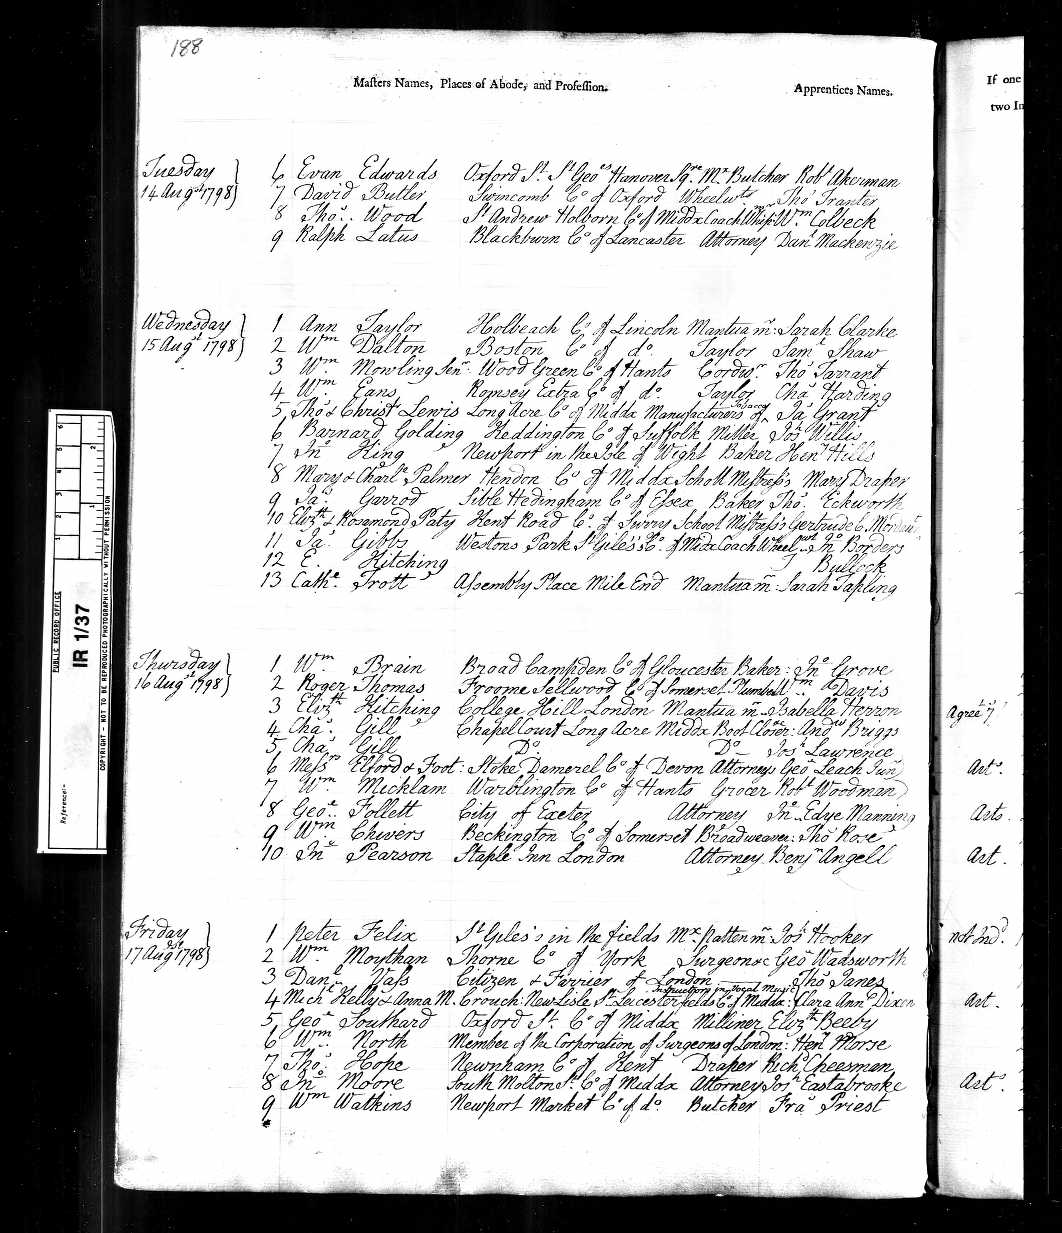 188
Masters Names, Places of Abode, and Profession. Apprentices Names.
If one
two In
Tuesday
14 Augst 1798
6 Evan Edwards Oxford St. St Geos Hanover Sqre Mr Butcher Robt Akerman
7 David Butler Swincomb Co of Oxford Wheelwt Thos Tranter
8 Thos. Wood St Andrew Holborn Co of Middx Coach Whip Mr Wm Colbeck
9 Ralph Latus Blackburn Co of Lancaster Attorney Danl Mackenzie
Wednesday
15 Augst 1798
1 Ann Taylor Holbeach Co of Lincoln Mantua mr: Sarah Clarke
2 Wm Dalton Boston Co of do. Taylor Saml Shaw
3 Wm. Mowling Senr. Wood Green Co of Hants Cordwr. Thos Tarrant
4 Wm Eans Romsey Extra Co of do. Taylor Chas Harding
5 Thos & Christr Lewis Long Acre Co of Middx Manufacturers of Jas Grant
6 Barnard Golding Heddington Co of Suffolk Miller Josh Willis
7 Jno King Newport in the Isle of Wight Baker Heny Hills
8 Mary & Charlte Palmer Hendon Co of Middx Scholl Mistress's Mary Draper
9 Jas. Garrod Sible Hedingham Co of Essex Baker Thos. Eckworth
10 Elizth & Rosemond Paty Kent Road Co. of Surry School Mistress's Gertrude E.
11 Jas. Gibbs Westons Park St Giles's Co. of Midx Coach Wheelwt Jno Borders
12 E. Kitching Bullock
13 Cathe. Trott Assembly Place Mile End Mantua mr: Sarah Tapling
Thursday
16 Augst 1798
1 Wm Brain Broad Campden Co of Gloucester Baker: Jno Grove
2 Roger Thomas Froome Sellwood Co of Somerset Plumber Wm Davis
3 Elizth Kitching College Hill London Mantua mr Isabella Herron
Agreet
4 Chas. Gill Chapel Court Long Acre Middx Boot Closer: Andw Briggs
5 Chas Gill Do. Do Josh Lawrence
6 Messrs Elford & Foot: Stoke Damerel Co of Devon Attorneys Geo Leach Junr
Art.
7 Wm. Micklam Warblington Co of Hants Grocer Robt Woodman
8 Geoe. Follett City of Exeter Attorney Jno Edye Manning
Arts.
9 Wm Chivers Beckington Co of Somerset Broadweaver: Thos Rose
10 Jno Pearson Staple Inn London Attorney Benjn Angell
Art.
Friday
17 Augst 1798
1 Peter Felix St Giles's in the fields Mx. Patten mr: Josh Hooker
not Ind.
2 Wm Moythan Thorne Co of York Surgeon &c Geo Wadsworth
3 Danl Vass Citizen & Furrier of London Thos Janes
Instructors in vocal Music
4 Michl Kelly & Anna M. Crouch: New Lisle St Leicester fields Co of Middx: Clara Ann Dixon
Art.
5 Geoe Southard Oxford St. Co of Middx Milliner Elizth Beeby
6 Wm North Member of the Corporation of Surgeons of London: Heny Morse
7 Thos. Hope Newnham Co of Kent Draper Richd Cheesman
8 Jno Moore South Molton St. Co of Middx Attorney Josh Eastabrooke
Art.
9 Wm Watkins Newport Market Co of do. Butcher Fras Priest
PUBLIC RECORD OFFICE
IR 1/37
Reference:-
COPYRIGHT - NOT TO BE REPRODUCED PHOTOGRAPHICALLY WITHOUT PERMISSION